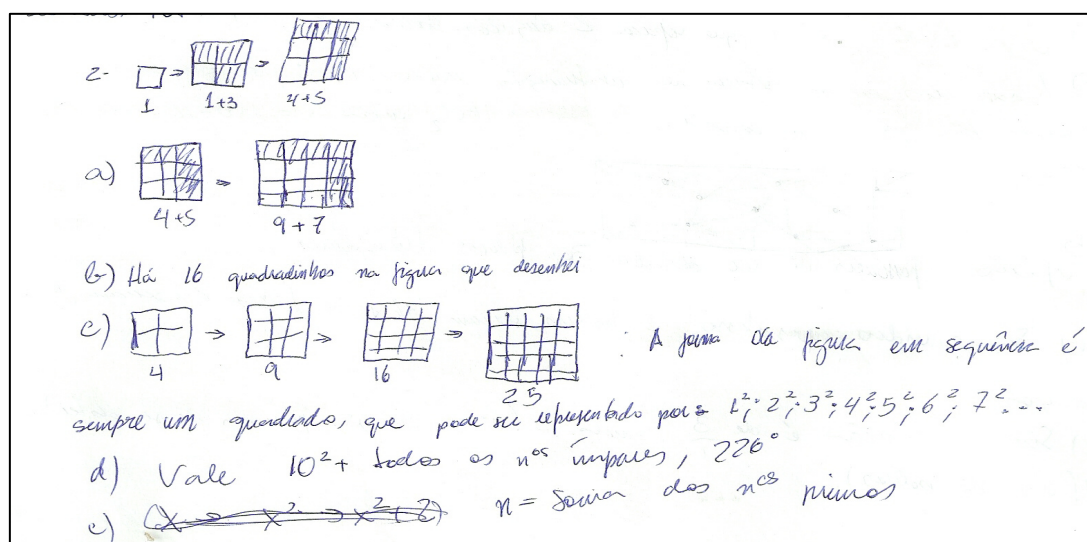 2-
1 1+3 4+5
a)
4+5 9+7
b) Há 16 quadradinhos na figura que desenhei
c)
4 9 16 25
: A forma da figura em sequência é
sempre um quadrado, que pode ser representado por: 1²; 2²; 3²; 4²; 5²; 6²; 7²...
d) Vale 10² + todos os nºs ímpares, 220°
e) n = Soma dos nºs primos